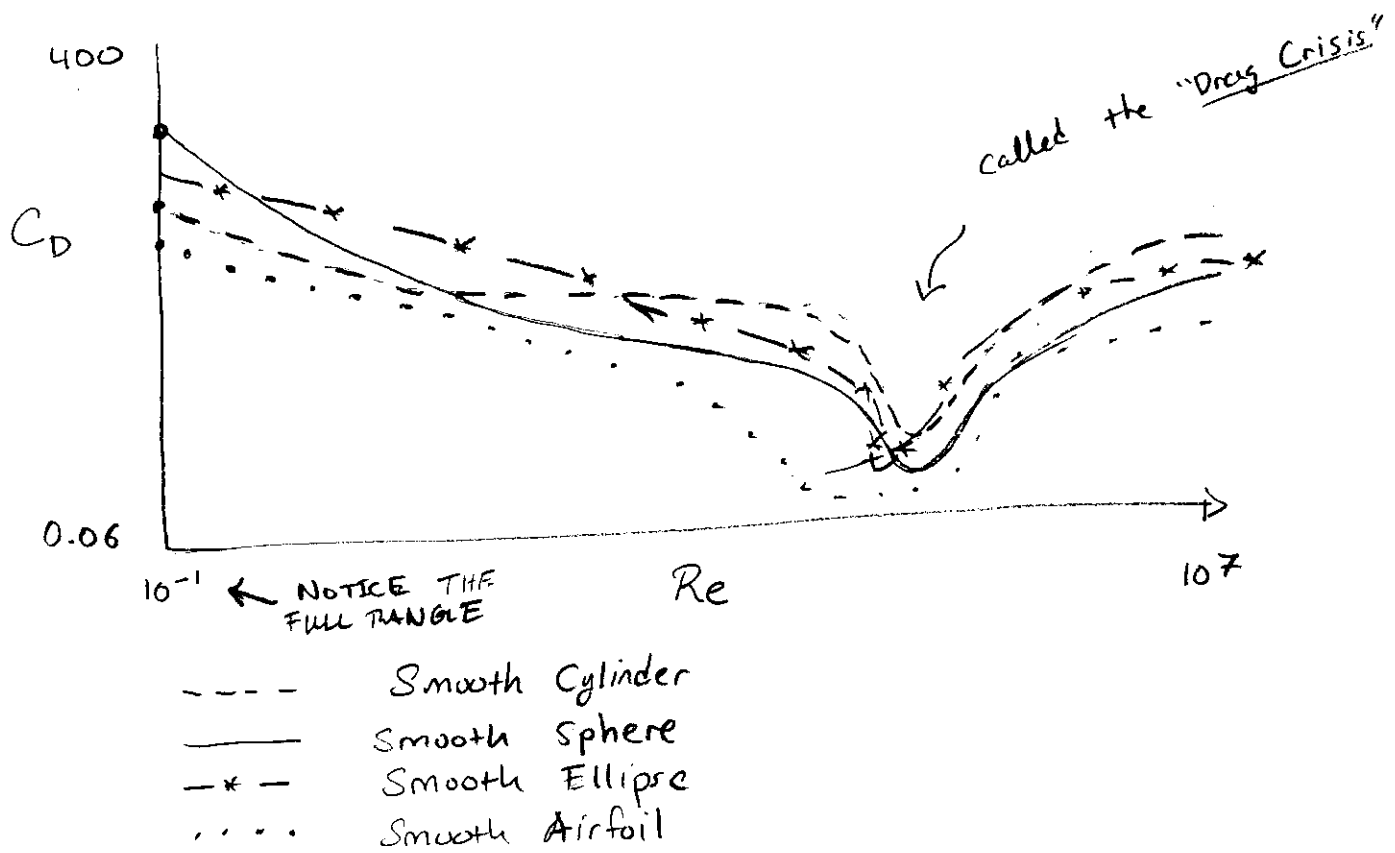 400
called the "Drag Crisis"
C_D
0.06
10^-1
← NOTICE THE
FULL RANGE
Re
10^7
Smooth Cylinder
Smooth Sphere
Smooth Ellipse
Smooth Airfoil